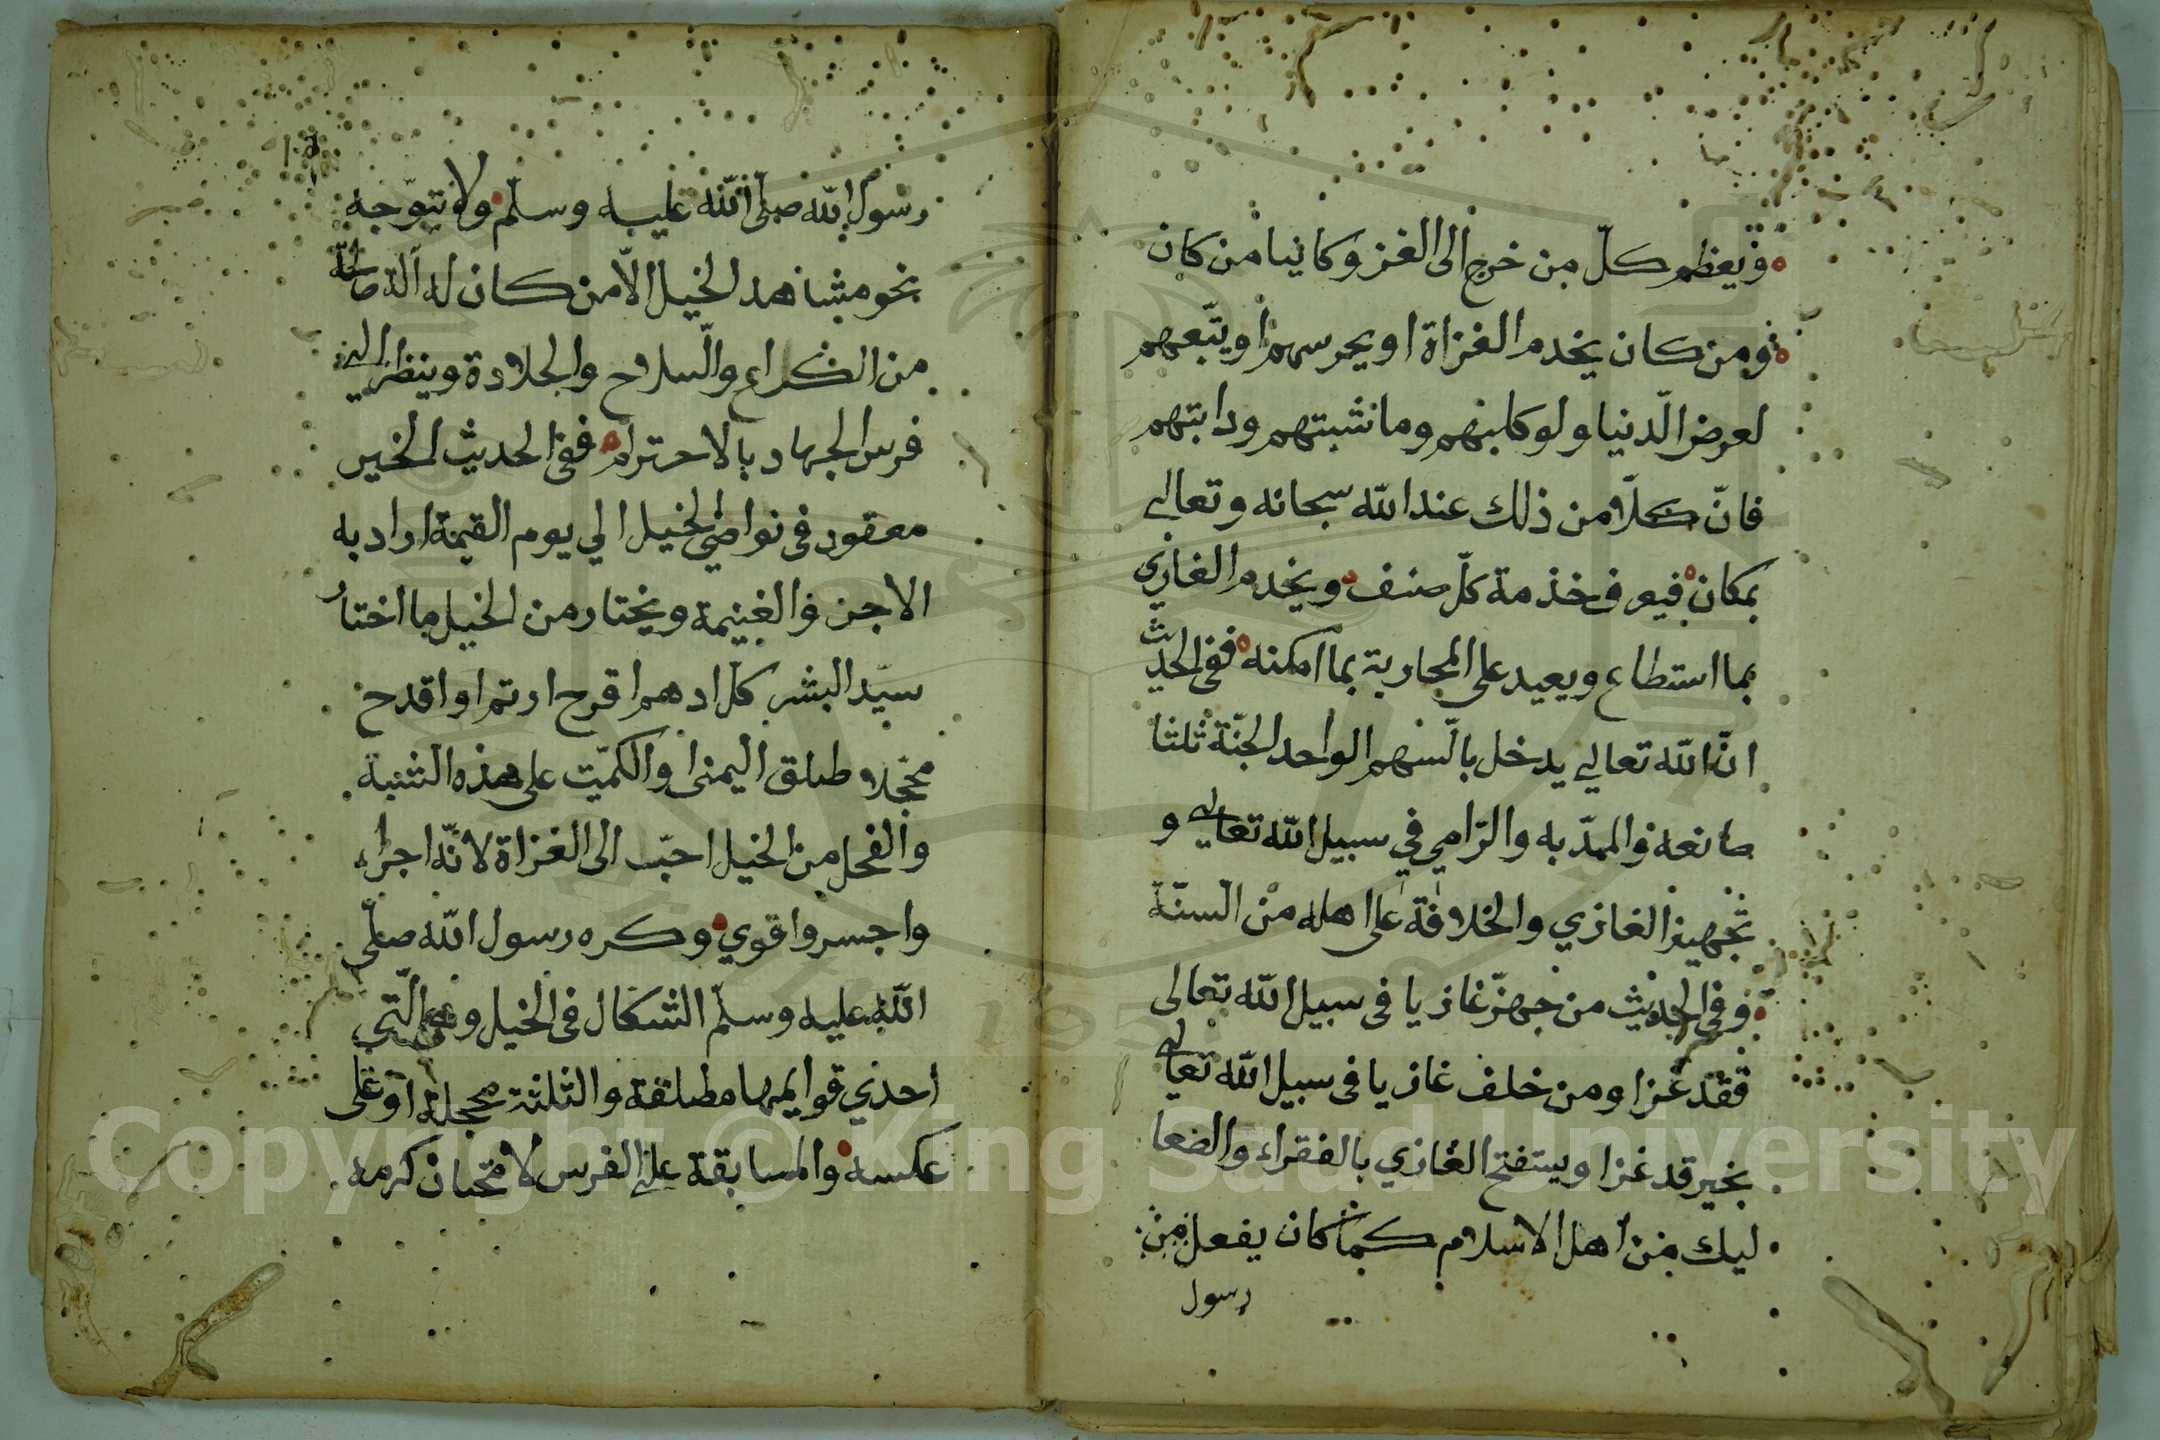 ويعظم كلّ من خرج الى الغزو كائنا من كان
ومن كان يخدم الغزاة او يحرسهم او يتّبعهم
لعرض الدّنيا ولو كلبهم وما نشبتهم ودابتهم
فانّ كلّا من ذلك عند الله سبحانه وتعالى
بمكان فيه فخدمة كلّ صنف ويخدم الغازي
بما استطاع ويعيد على المحاربة بما امكنه ففى الحديث
انّ الله تعالى يدخل بالسّهم الواحد الجنّة ثلثا
صانعه والممدّ به والرّامي في سبيل الله تعالى و
تجهيز الغازي والخلافة على اهله من السنّة
وفى الحديث من جهّز غازيا فى سبيل الله تعالى
فقد غزا ومن خلف غازيا فى سبيل الله تعالى
بخير قد غزا ويستفتح الغازي بالفقراء والضعا
ليك من اهل الاسلام كما كان يفعل من
رسول
رسول الله صلّى الله عليه وسلّم ولا يتوّجه
نحو مشاهد الخيل الّا من كان له آلة صالحة
من الكراع والسّلاح والجلادة وينظر الى
فرس الجهاد بالاحترام ففى الحديث الخير
معقود فى نواصى الخيل الي يوم القيمة اراد به
الاجر والغنيمة ويختار من الخيل ما اختار
سيّد البشر كلّ ادهم اقرح ارثم او اقدح
محجلا طلق اليمنى او الكمّيت على هذه الشية
والفحل من الخيل احبّ الى الغزاة لانّه اجراء
واجسر واقوي وكره رسول الله صلّى
الله عليه وسلّم الشكال فى الخيل وهى الّتى
احدي قوايمها مطلقة والثلثة محجلة او على
عكسه والمسابقة على الفرس لامتحان كرمه
Copyright © King Saud University